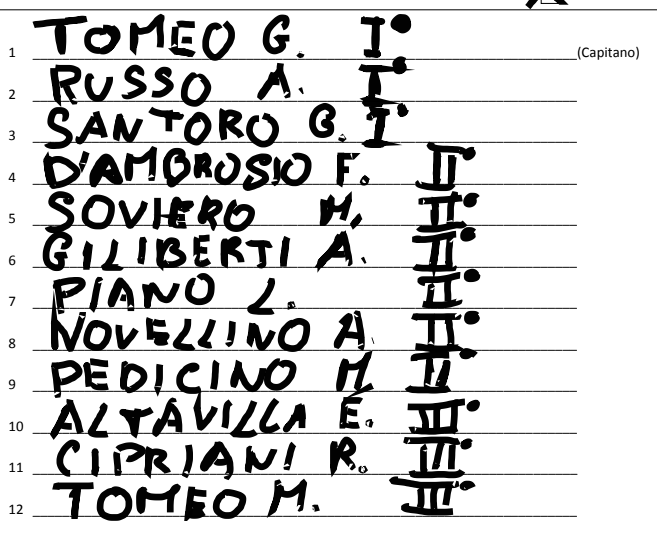 1 TOMEO G. I° (Capitano)
2 RUSSO A. I°
3 SANTORO G. I°
4 D'AMBROSIO F. II°
5 SOVIERO M. II°
6 GILIBERTI A. II°
7 PIANO L. II°
8 NOVELLINO A. II°
9 PEDICINO M. II°
10 ALTAVILLA E. III°
11 CIPRIANI R. III°
12 TOMEO M. III°